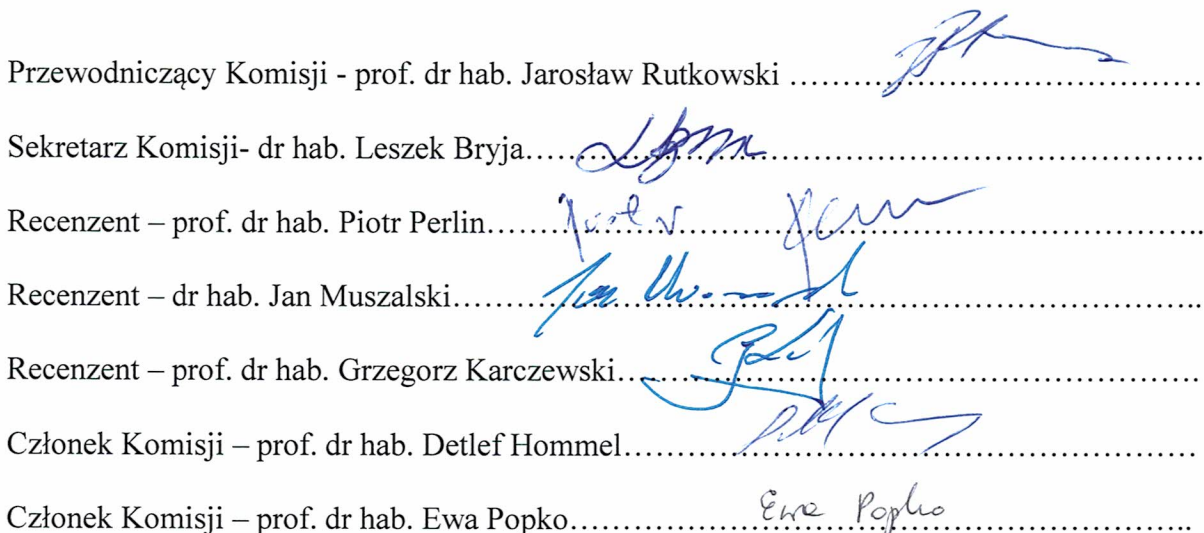 Przewodniczący Komisji - prof. dr hab. Jarosław Rutkowski ……………………………………………
Sekretarz Komisji- dr hab. Leszek Bryja…………………………………………………………………………
Recenzent – prof. dr hab. Piotr Perlin……………………………………………………………………………..
Recenzent – dr hab. Jan Muszalski………………………………………………………………………………..
Recenzent – prof. dr hab. Grzegorz Karczewski……………………………………………………………
Członek Komisji – prof. dr hab. Detlef Hommel……………………………………………………………
Członek Komisji – prof. dr hab. Ewa Popko…………Ewa Popko………………………..